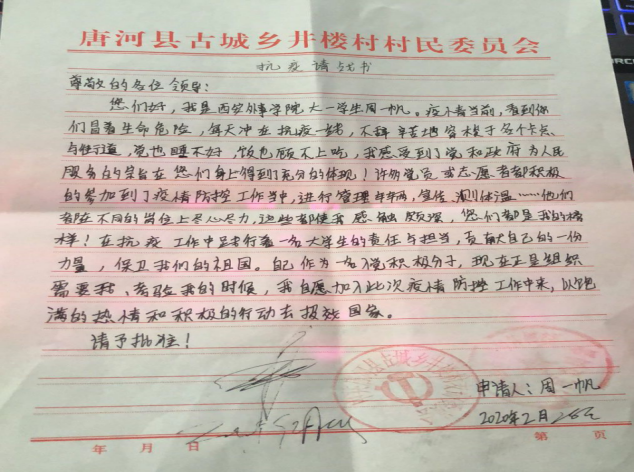 唐河县古城乡井楼村村民委员会
抗疫请战书
尊敬的各位领导:
您们好,我是西安外事学院大一学生周一帆。疫情当前,看到你
们冒着生命危险,每天冲在抗疫一线,不辞辛苦地穿梭于各个卡点
与街道,觉也睡不好,饭也顾不上吃,我感受到了党和政府为人民
服务的宗旨在您们身上得到了充分的体现!许多党员、或志愿者都积极
的参加到了疫情防控工作当中,进行管理车辆,宣传、测体温……他们
都在不同的岗位上尽心尽力,这些都使我感触颇深,您们都是我的榜
样!在抗疫工作中履行着一名大学生的责任与担当,贡献自己的一份
力量,保卫我们的祖国。自己作为一名入党积极分子,现在正是组织
需要我、考验我的时候,我自愿加入此次疫情防控工作中来,以饱
满的热情和积极的行动去报效国家。
请予批准!
申请人:周一帆
2020年2月
年 月 日
第 页